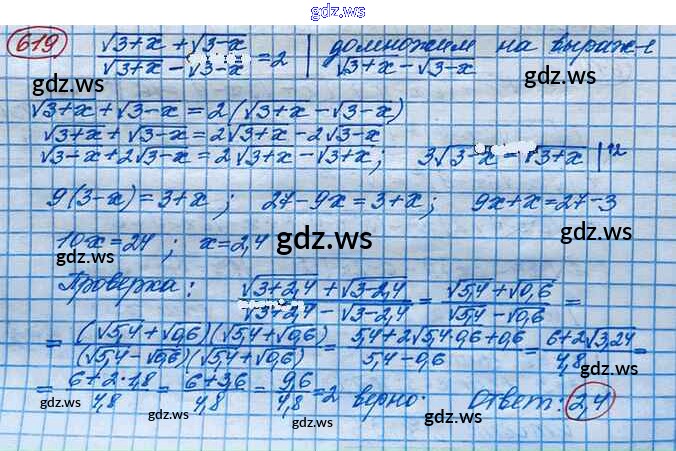 gdz.ws
619 (√3+x + √3-x)/(√3+x - √3-x) = 2 | домножим на выраж-е √3+x - √3-x
gdz.ws
√3+x + √3-x = 2(√3+x - √3-x)
√3+x + √3-x = 2√3+x - 2√3-x
√3-x + 2√3-x = 2√3+x - √3+x; 3√3-x = √3+x |^2
9(3-x) = 3+x; 27-9x = 3+x; 9x+x = 27-3
10x = 24; x = 2,4
gdz.ws gdz.ws
Проверка: (√3+2,4 + √3-2,4)/(√3+2,4 - √3-2,4) = (√5,4 + √0,6)/(√5,4 - √0,6) =
= (√5,4 + √0,6)(√5,4 + √0,6)/(√5,4 - √0,6)(√5,4 + √0,6) = (5,4 + 2√5,4·0,6 + 0,6)/(5,4 - 0,6) = (6+2√3,24)/4,8 =
gdz.ws
= (6+2·1,8)/4,8 = (6+3,6)/4,8 = 9,6/4,8 = 2 верно. Ответ: 2,4
gdz.ws gdz.ws gdz.ws gdz.ws
gdz.ws